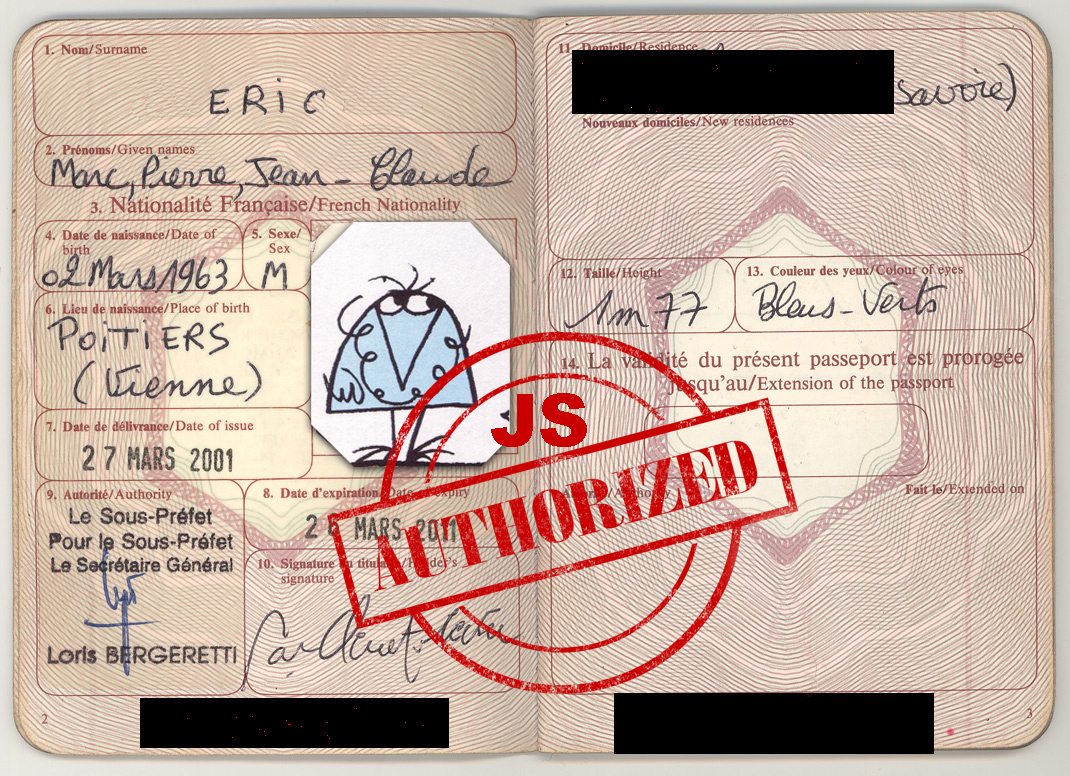 1. Nom/Surname
ERIC
2. Prénoms/Given names
Marc, Pierre, Jean-Claude
3. Nationalité Française/French Nationality
4. Date de naissance/Date of
birth
02 Mars 1963
5. Sexe/
Sex
M
6. Lieu de naissance/Place of birth
POITIERS
(Vienne)
7. Date de délivrance/Date of issue
27 MARS 2001
9. Autorité/Authority
Le Sous-Préfet
Pour le Sous-Préfet
Le Secrétaire Général
Loris BERGERETTI
8. Date d'expiration/Date of expiry
26 MARS 2011
10. Signature du titulaire/Holder's
signature
2
JS
AUTHORIZED
11. Domicile/Residence
Savoie)
Nouveaux domiciles/New residences
12. Taille/Height
1m77
13. Couleur des yeux/Colour of eyes
Bleus-Verts
14. La validité du présent passeport est prorogée
jusqu'au/Extension of the passport
Autorité/Authority
Fait le/Extended on
3